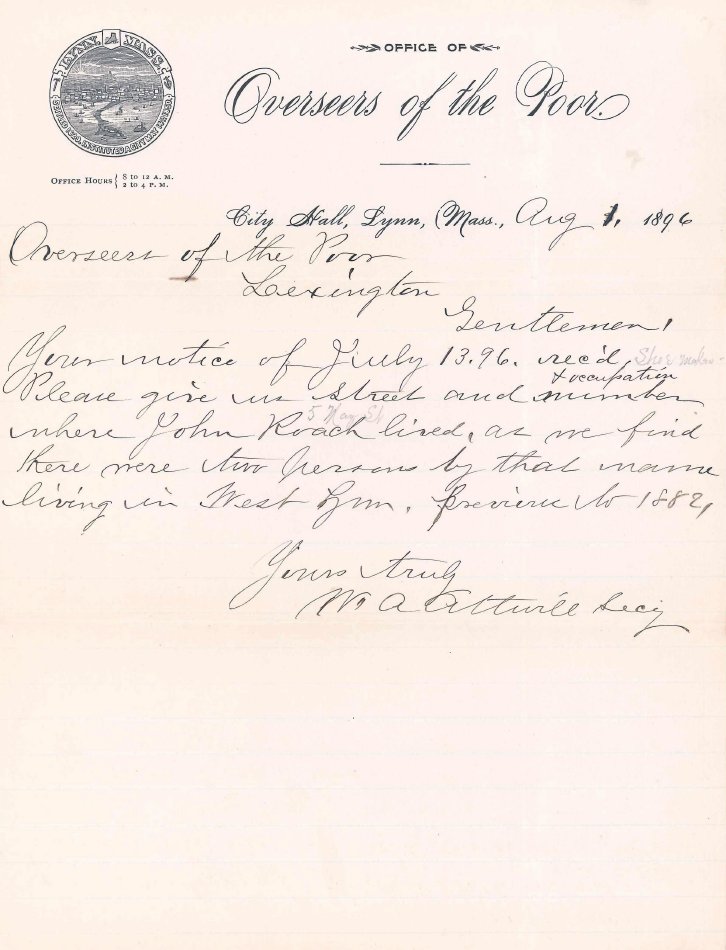 LYNN, MASS.
SETTLED 1629. INSTITUTED A CITY MAY 14TH 1850.
OFFICE OF
Overseers of the Poor.
OFFICE HOURS { 8 TO 12 A. M.
2 TO 4 P. M.
City Hall, Lynn, Mass., Aug 1, 1896
Overseers of the Poor
Lexington
Gentlemen,
Your notice of July 13.96. rec'd
Shoe maker
& occupation
Please give us street and number
5 May St
where John Roach lived, as we find
there were two persons by that name
living in West Lynn, previous to 1882,
Yours truly
Wm A Attwill Secy